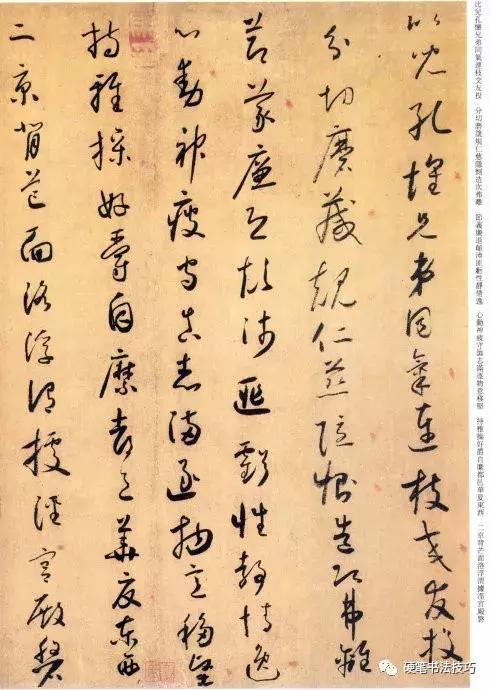 比兒孔懷兄弟同氣連枝交友投 分切磨箴規仁慈隱惻造次弗離 節義廉退顛沛匪虧性靜情逸 心動神疲守真志滿逐物意移堅 持雅操好爵自縻都邑華夏東西 二京背芒面洛浮渭據涇宮殿
比兒孔懷兄弟同氣連枝交友投
分切磨箴規仁慈隱惻造次弗離
節義廉退顛沛匪虧性靜情逸
心動神疲守真志滿逐物意移堅
持雅操好爵自縻都邑華夏東西
二京背芒面洛浮渭據涇宮殿盤
硬笔书法技巧